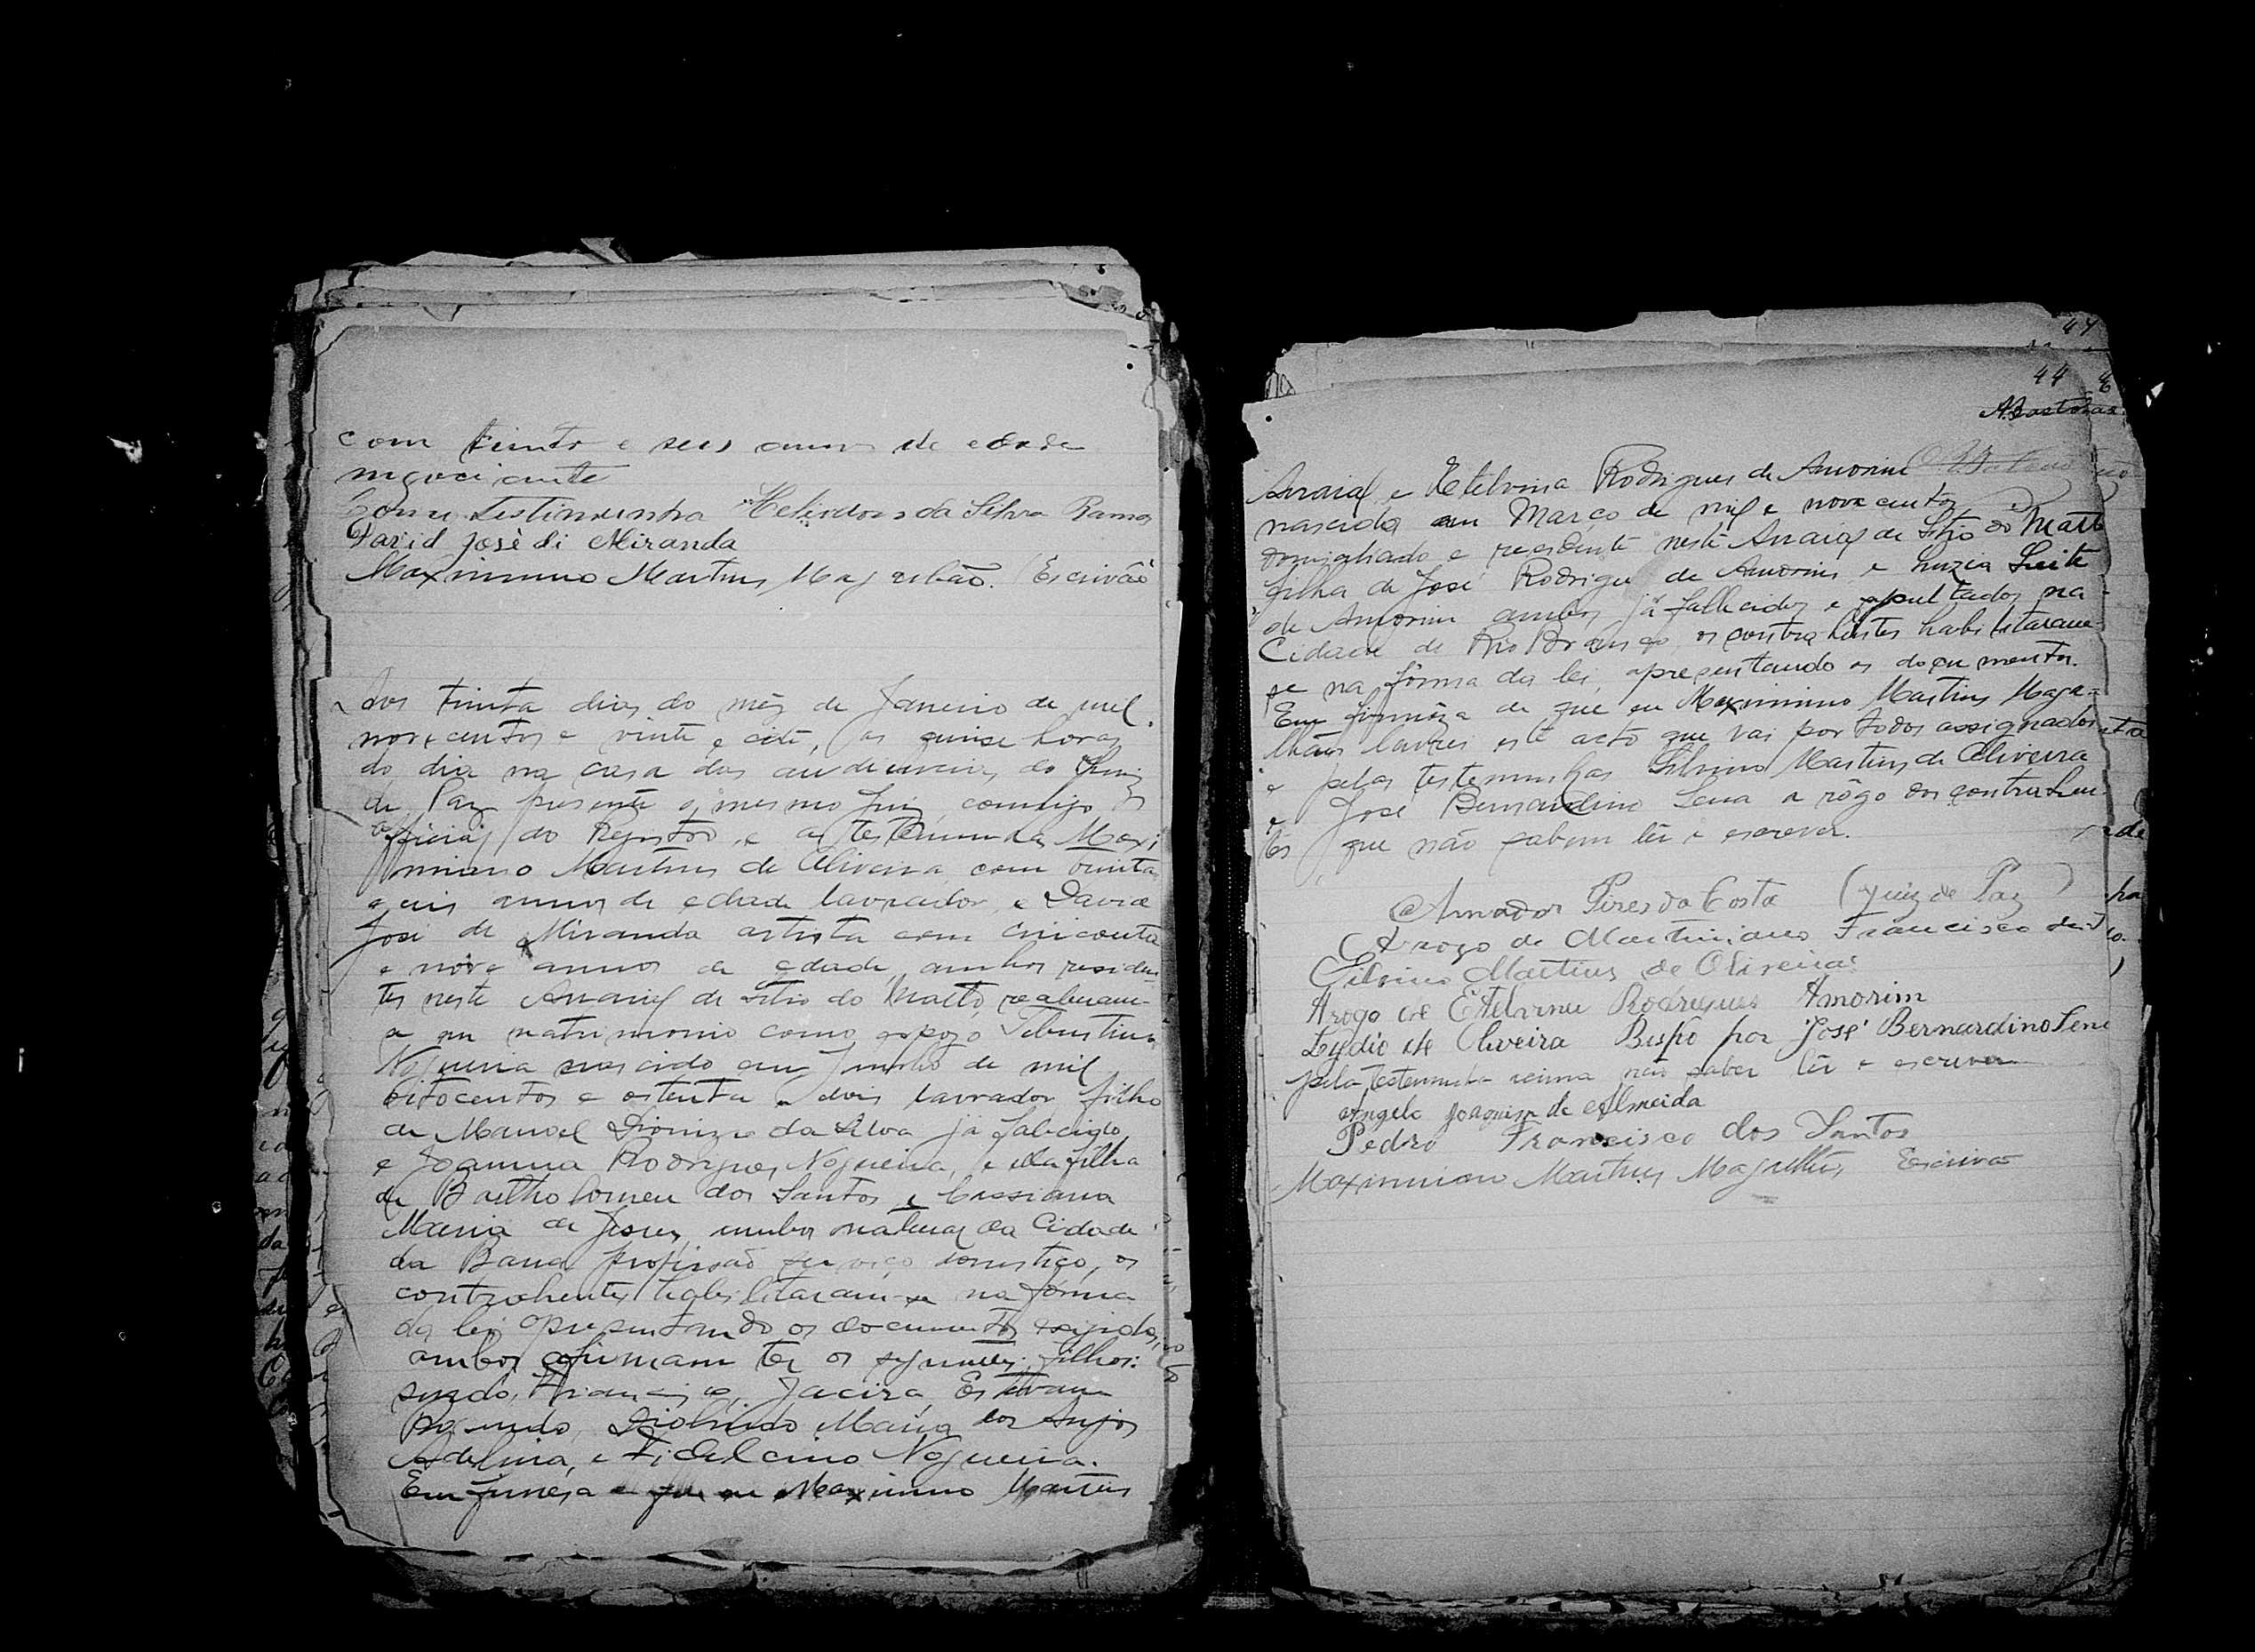 com trinta e seis annos de edade
negociante
Como testimunha Heliodoro da Silva Ramos
David José di Miranda
Maximinno Martins Magalhão. (Escrivão
Aos trinta dias do mêz de Janeiro de mil
novecentos e vinte e oito, as quinse horas
do dia na casa das audiencias do Juiz
de Paz presente o mesmo Juiz commigo
official do Registro, e as testemunhas Maxi
minno Martins de Oliveira com trinta
e seis annos de edade lavrador, e David
José de Miranda artista com cincoenta
e nóve annos de edade, ambos residen-
tes neste Arraial de Sitio do Matto, receberam-
se em matrimonio como espozo
Nogueira nascido em Junho de mil
oitocentos e oitenta e dois lavrador filho
de Manoel Dionizio da Silva já falecido
e Joanna Rodrigues Nogueira, e ella filha
de Bartholomeu dos Santos e Cassiana
Maria de Jesus, ambos naturaes da Cidade
da Barra profissão serviço domestico, os
contrahentes habilitaram-se na fórma
da lei apresentando os documentos exigidos,
ambos afirmam ter os seguintes filhos:
sendo, Jacira,
Maria dos Anjos
Adelina, e Fidelcino Nogueira.
Em firmeza de que eu Maximinno Martins
44
44
Arraial e Etelvina Rodrigues de Amorim
nascida em Março de mil e novecentos
domiciliado e residente neste Arraial de Sitio do Matto
filha de José Rodrigues de Amorim e Luzia Leite
de Amorim ambos já fallecidos e sepultados na
Cidade de Rio Branco, os contrahentes habilitaram-
se na fórma da lei, apresentando os documentos.
Em firmêza de que eu Maximinno Martins Maga-
lhães lavrei este acto que vai por todos assignados
e pelas testemunhas Silvino Martins de Oliveira
e José Bernardino Sena a rôgo dos contrahen
tes, que não sabem lêr e escrever.
Amador Pires da Costa (Juiz de Paz)
Arogo de Martiniano Francisco de
Silvino Martins de Oliveira
Arogo de Etelvina Rodrigues Amorim
Lydio de Oliveira Bispo por José Bernardino Sena
pela testemunha acima não saber lêr e escrever
Angelo Joaquim de Almeida
Pedro Francisco dos Santos
Maximinno Martins Magalhães Escrivão